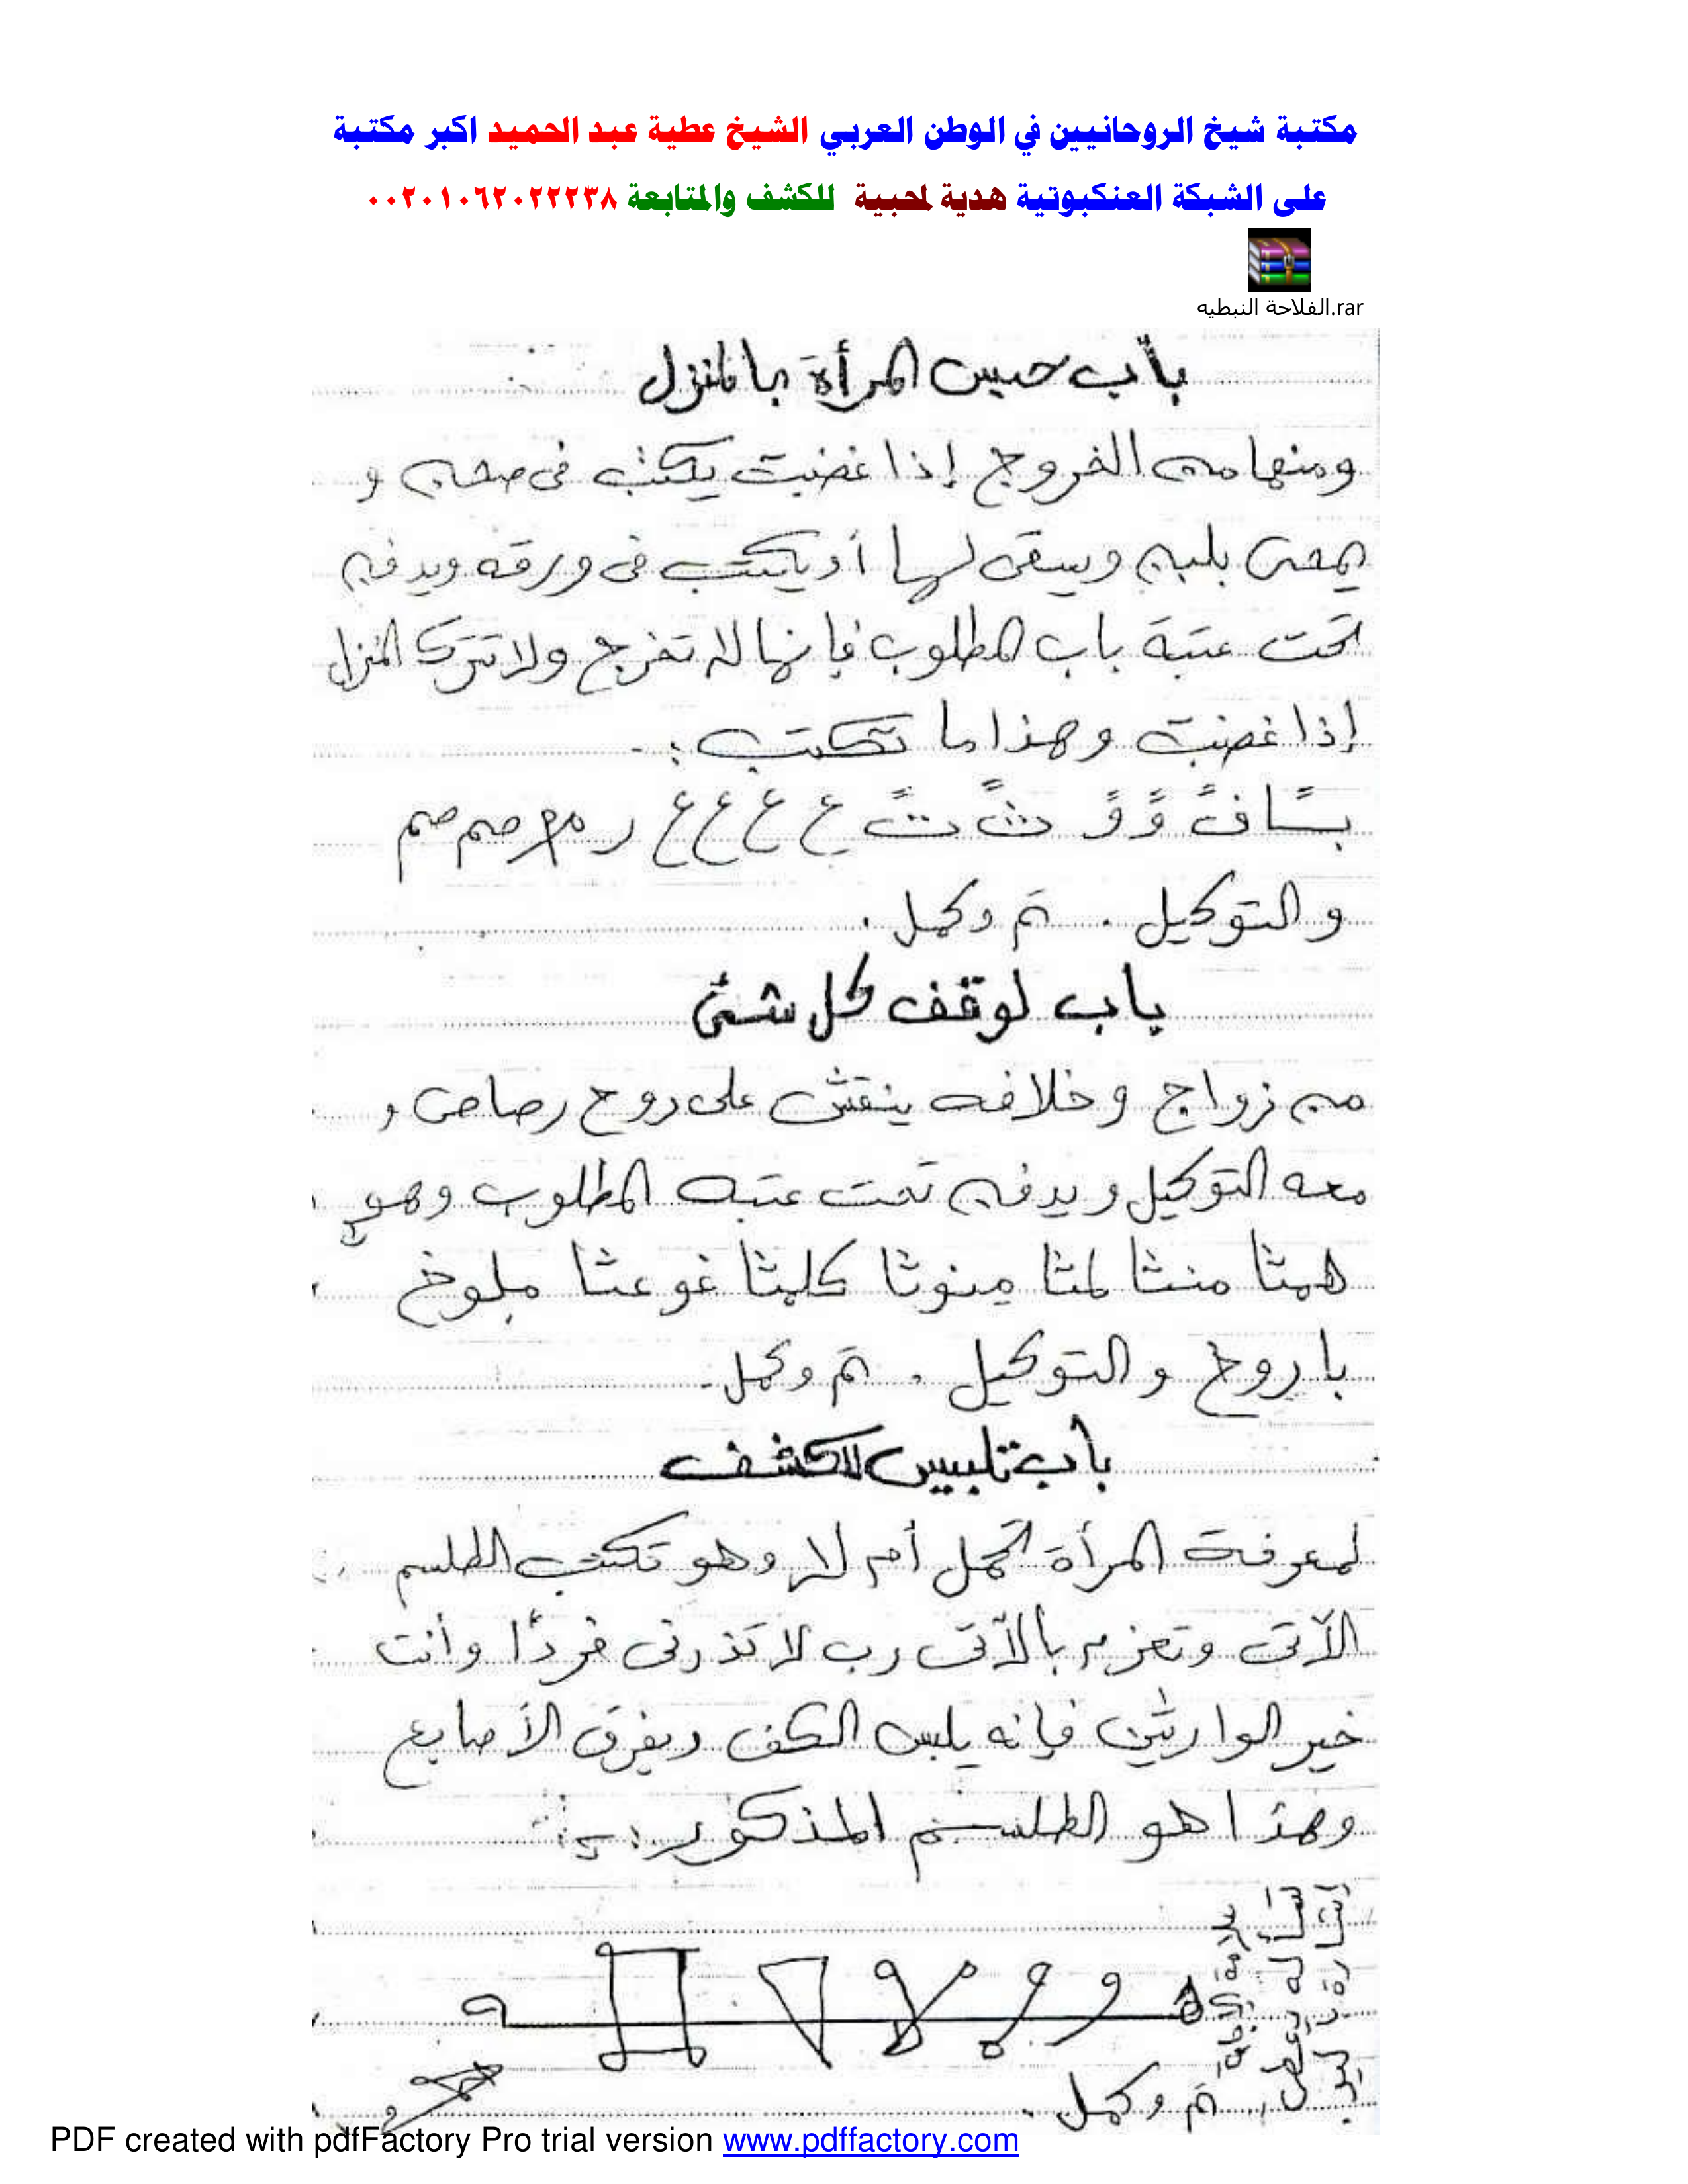 مكتبة شيخ الروحانيين في الوطن العربي الشيخ عطية عبد الحميد اكبر مكتبة
على الشبكة العنكبوتية هدية لمحبية للكشف والمتابعة ٠٠٢٠١٠٦٢٠٢٢٢٣٨
الفلاحة النبطيه.rar
باب حبس المرأة بالمنزل
ومنعها من الخروج إذا غضبت يكتب فى صحن و
يمحى بلبن ويسقى لها أو يكتب فى ورقه ويدفن
تحت عتبة باب المطلوب فإنها لا تخرج ولا تترك المنزل
إذا غضبت وهذا ما تكتب :.
ع ع ع ع ر صم صم
والتوكيل . تم وكمل .
باب لوقف كل شئ
من زواج وخلافه ينقش على روح رصاص و
معه التوكيل ويدفن تحت عتبه المطلوب وهو
همثا منثا لمثا مينوثا كلمثا غوعثا ملوخ
باروخ والتوكيل . تم وكمل .
باب تلبيس الكشف
لمعرفة المرأة تحمل أم لا وهو تكتب الطلسم
الآتى وتعزم بالآتى رب لا تذرنى فردًا وأنت
خير الوارثين فإنه يلبس الكف ويفرق الأصابع
وهذا هو الطلسم المذكور :
تم وكمل .
PDF created with pdfFactory Pro trial version www.pdffactory.com